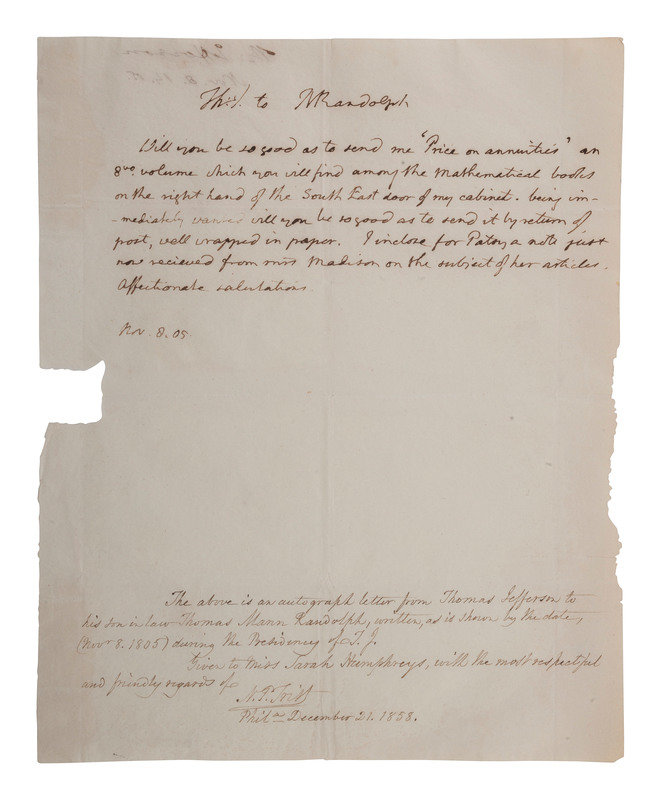 Th:J. to MRandolph
Will you be so good as to send me "Price on annuities" an
8vo. volume which you will find among the Mathematical books
on the right hand of the South East door of my cabinet. being im-
-mediately wanted will you be so good as to send it by return of
post, well wrapped in paper. I inclose for Patsy a note just
now recieved from mrs Madison on the subject of her articles.
Affectionate salutations
Nov. 8. 05.
The above is an autograph letter from Thomas Jefferson to
his son in law Thomas Mann Randolph, written, as is shown by the date,
(Novr 8. 1805) during the Presidency of T. J.
Given to Miss Sarah Humphreys, with the most respectful
and friendly regards of
N. P. Trist
Phila December 21. 1858.